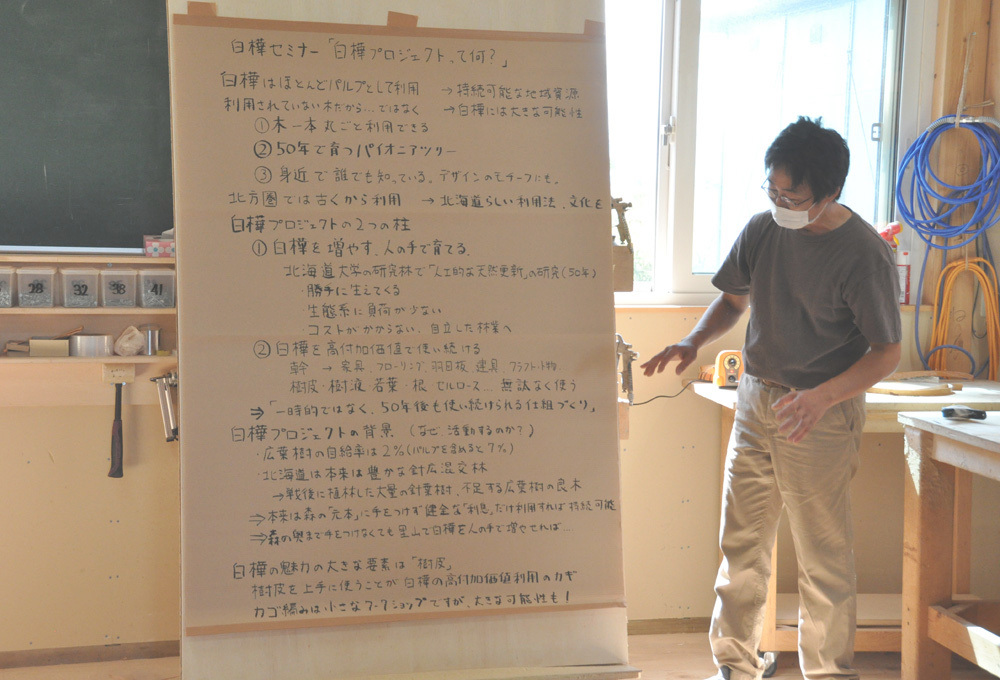 白樺セミナー「白樺プロジェクト、って何?」
白樺はほとんどパルプとして利用 → 持続可能な地域資源
利用されていない木だから…ではなく → 白樺には大きな可能性
① 木一本丸ごと利用できる
② 50年で育つパイオニアツリー
③ 身近で誰でも知っている。デザインのモチーフにも。
北方圏では古くから利用 → 北海道らしい利用法、文化を
白樺プロジェクトの2つの柱
① 白樺を増やす、人の手で育てる。
北海道大学の研究林で「人工的な天然更新」の研究(50年)
・勝手に生えてくる
・生態系に負荷が少ない
・コストがかからない、自立した林業へ
② 白樺を高付加価値で使い続ける
幹 → 家具、フローリング、羽目板、建具、クラフト小物
樹皮・樹液・若葉・根・セルロース… 無駄なく使う
⇒「一時的ではなく、50年後も使い続けられる仕組づくり」
白樺プロジェクトの背景 (なぜ、活動するのか?)
・広葉樹の自給率は2%(パルプを含めると7%)
・北海道は本来は豊かな針広混交林
→戦後に植林した大量の針葉樹、不足する広葉樹の良木
⇒本来は森の「元本」に手をつけず健全な「利息」だけ利用すれば持続可能
⇒森の奥まで手をつけなくても里山で白樺を人の手で増やせれば…
白樺の魅力の大きな要素は「樹皮」
樹皮を上手に使うことが白樺の高付加価値利用のカギ
カゴ編みは小さなワークショップですが、大きな可能性も!
28
32
38
41